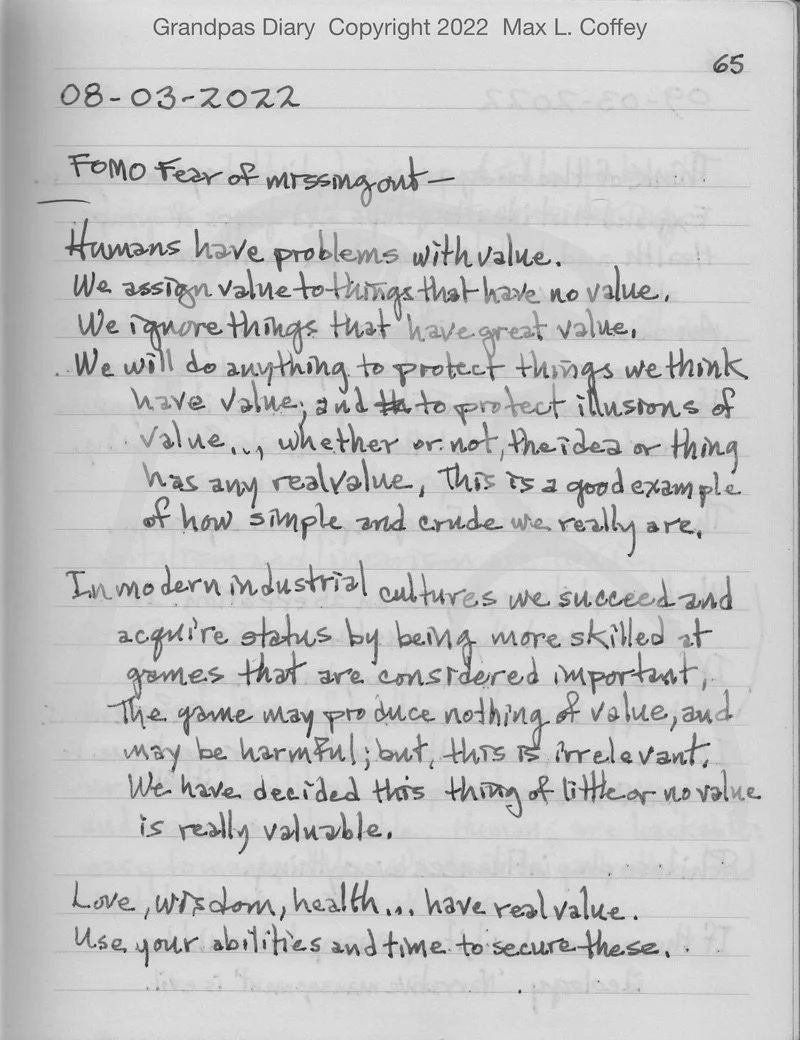 Grandpas Diary Copyright 2022 Max L. Coffey
65
08-03-2022
FOMO Fear of missing out—
Humans have problems with value.
We assign value to things that have no value.
We ignore things that have great value.
We will do anything to protect things we think
have value; and to protect illusions of
value..., whether or not, the idea or thing
has any real value, This is a good example
of how simple and crude we really are.
In modern industrial cultures we succeed and
acquire status by being more skilled at
games that are considered important,
The game may produce nothing of value, and
may be harmful; but, this is irrelevant.
We have decided this thing of little or no value
is really valuable.
Love, wisdom, health... have real value.
Use your abilities and time to secure these.